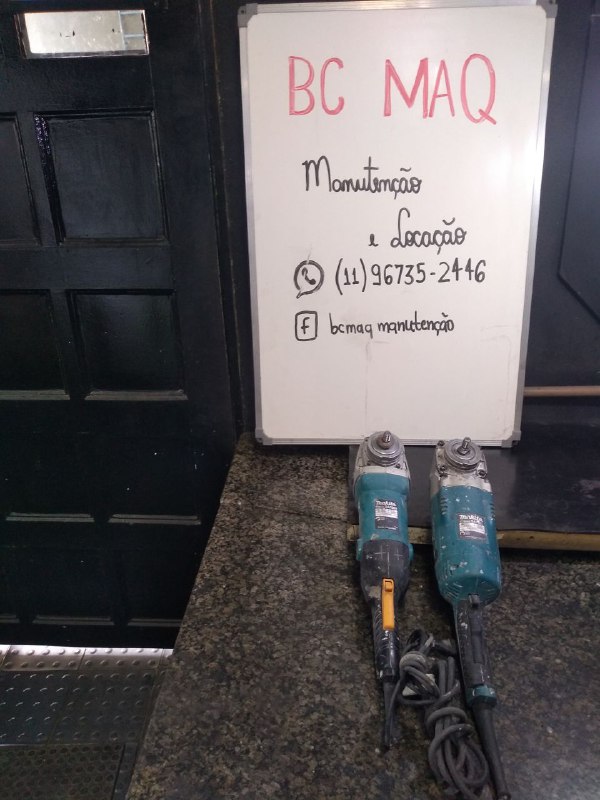 BC MAQ
Manutenção
e Locação
(11) 96735-2446
f bcmaq manutenção
makita
makita